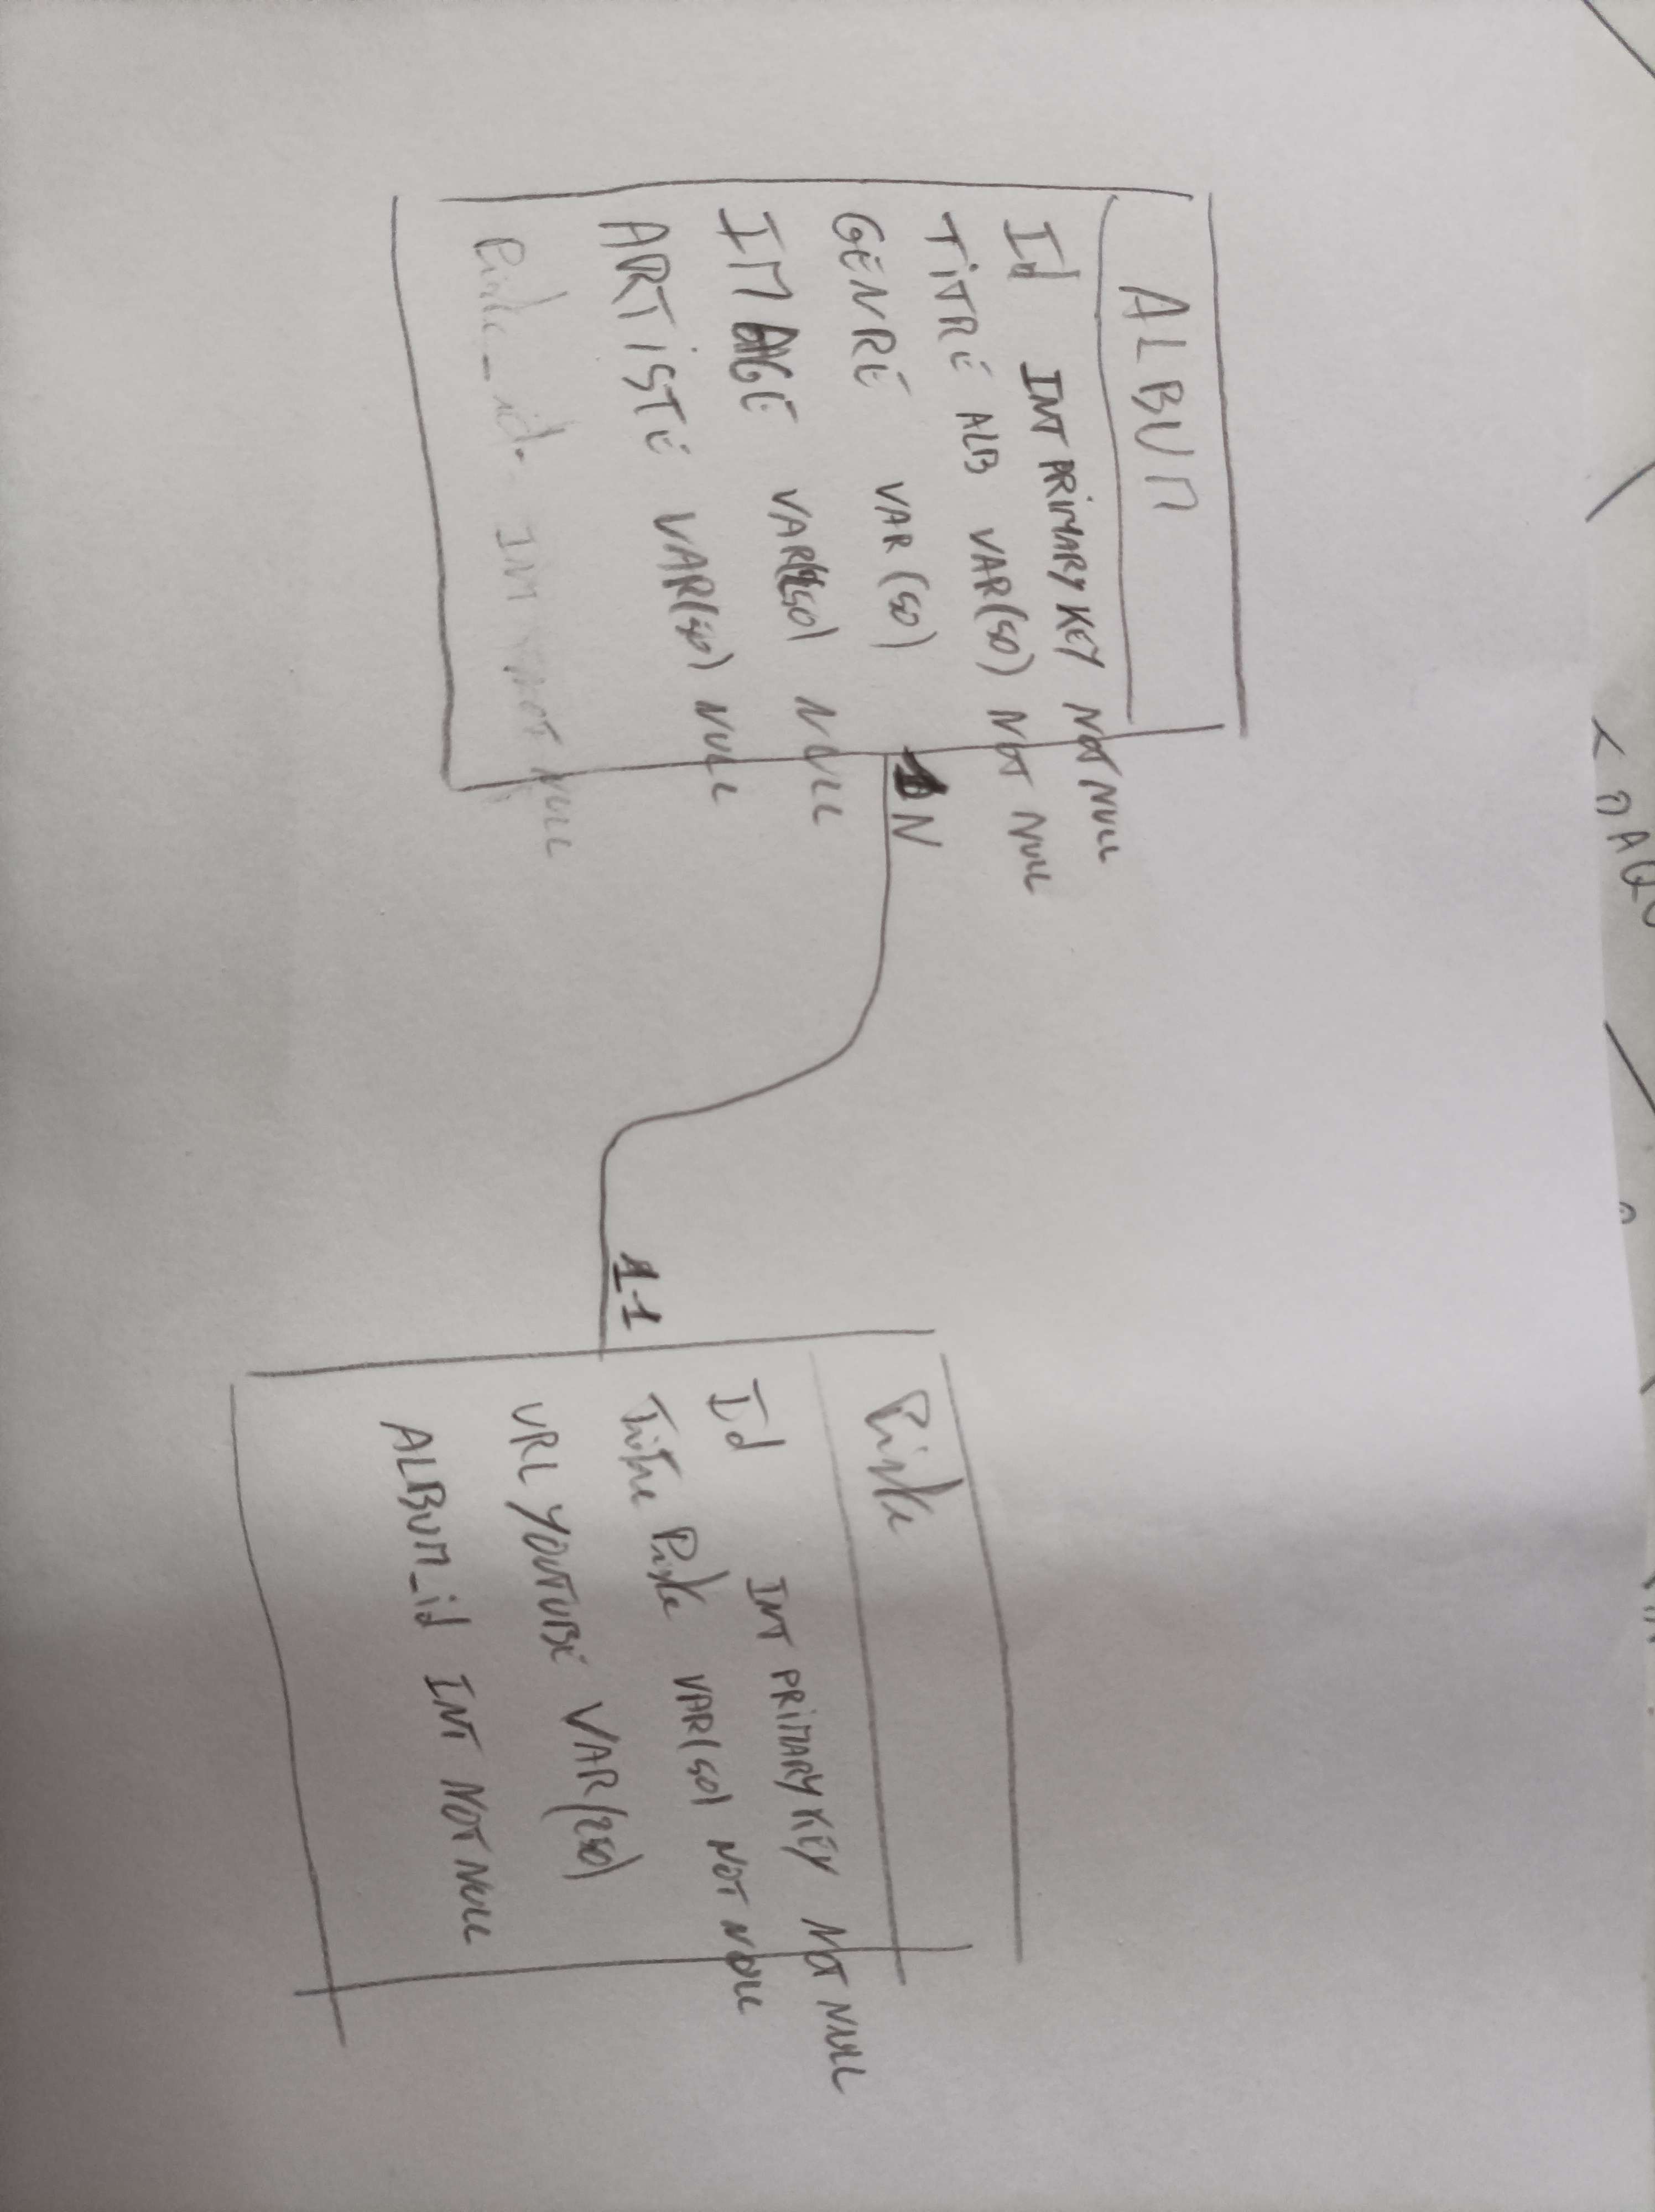 ALBUM
Id INT PRIMARY KEY NOT NULL
TITRE ALB VAR(50) NOT NULL
GENRE VAR (50)
IMAGE VAR(250) NULL
ARTISTE VAR(50) NULL
Piste_id INT NOT NULL
N
1-1
Piste
Id INT PRIMARY KEY NOT NULL
Titre Piste VAR(50) NOT NULL
URL YOUTUBE VAR(250)
ALBUM_id INT NOT NULL